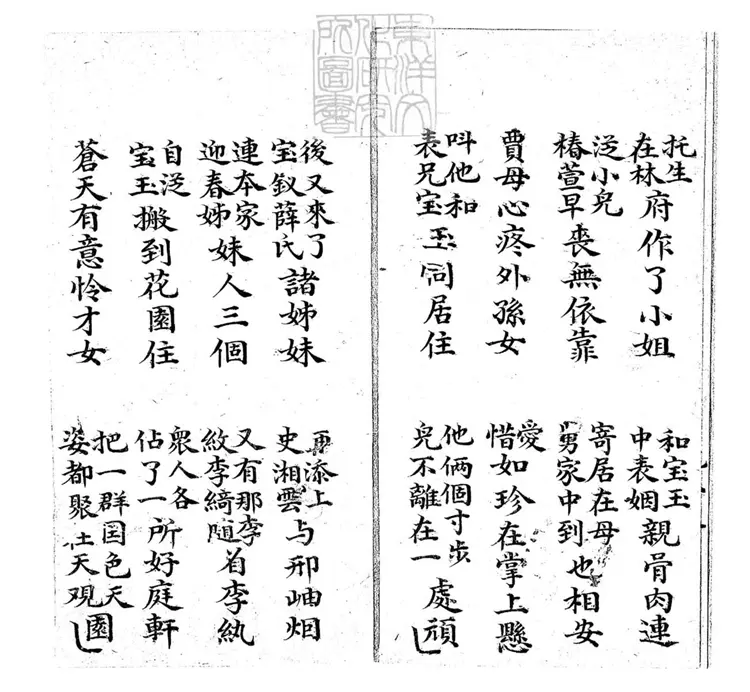 東洋文化研究所圖書
托生在林府作了小姐
和宝玉中表姻親骨肉連
泛小兒椿萱早丧無依靠
寄居在母舅家中到也相安
賈母心疼外孫女
愛惜如珍在掌上懸
呌他和表兄宝玉同居住
他俩個寸步兒不離在一處頑
後又來了宝釵薛氏諸姊妹
再添上史湘雲与邢岫烟
連夲家迎春姊妹人三個
又有那李紋李綺随着李紈
自泛宝玉搬到花園住
衆人各佔了一所好庭軒
蒼天有意怜才女
把一群国色天姿都聚在天观園